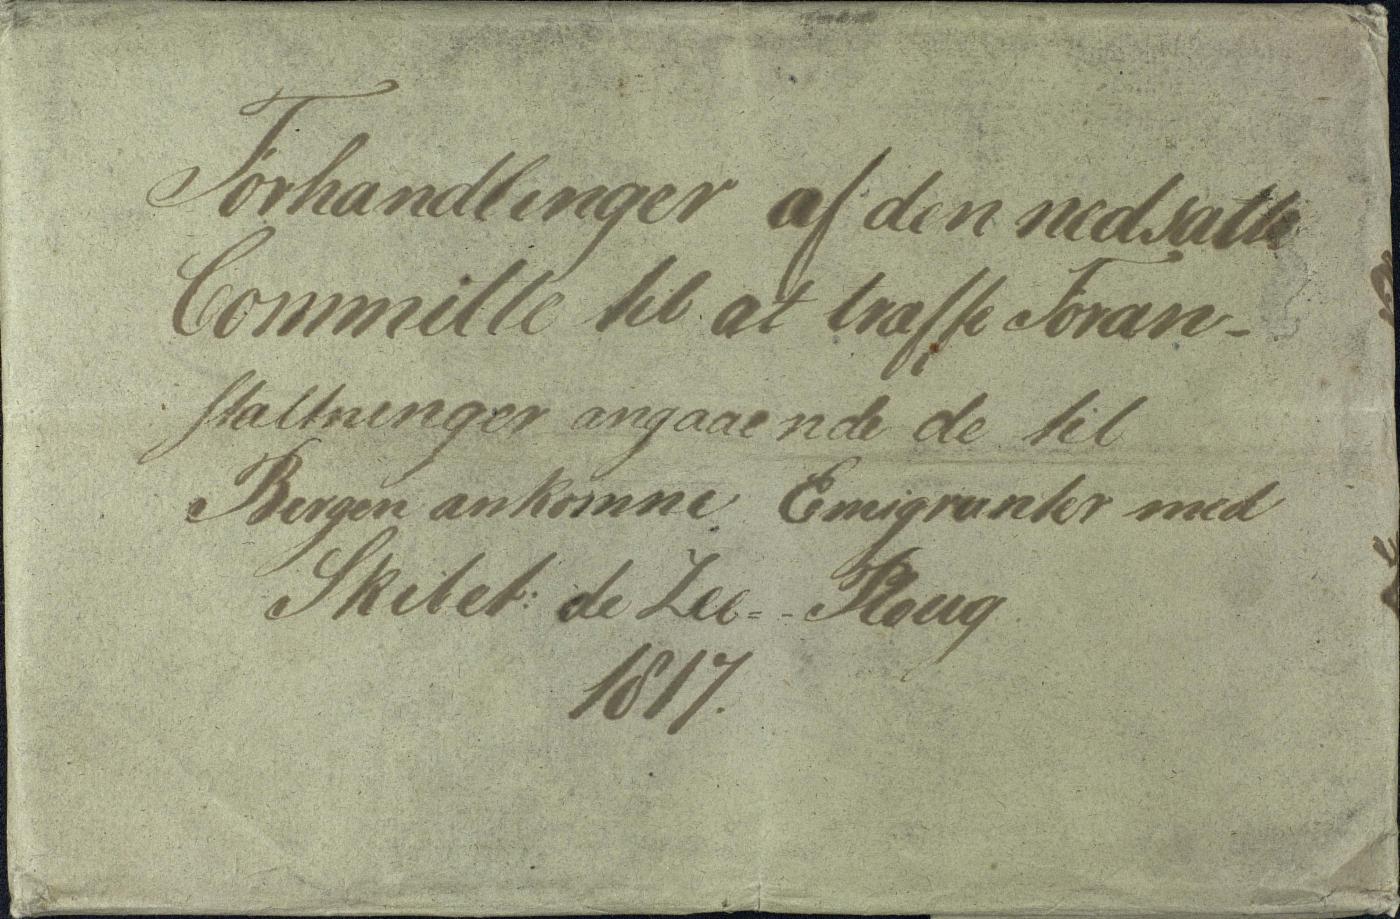 Forhandlinger af den nedsatte
Committe til at træffe Foran-
staltninger angaaende de til
Bergen ankomne Emigranter med
Skibet: de Zee=- Ploug
1817.